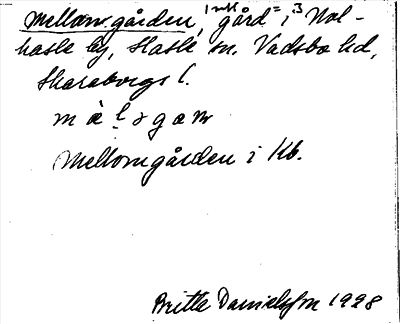 Mellomgården, 1 mtl = gård i 3 Nol-
hasle by, Hasle sn. Vadsbo hd,
Skaraborgs l.
Mellomgården i Kb.
Britta Danielsson 1928